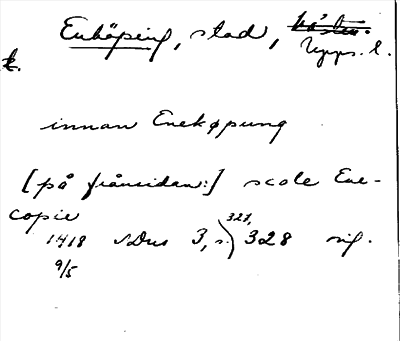 Enköping, stad,
Upps. l.
k.
innan Enekøpung
[på frånsidan:] scole Ene-
copie
1418 SDns 3, s. 327, 328 sig.
9/5